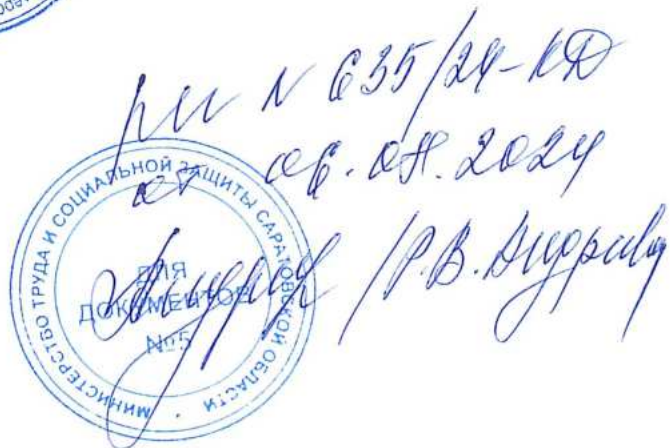 рег N 635/24-КД
от 06.08.2024
/Р.В. Андреева
МИНИСТЕРСТВО ТРУДА И СОЦИАЛЬНОЙ ЗАЩИТЫ САРАТОВСКОЙ ОБЛАСТИ
ДЛЯ
ДОКУМЕНТОВ
№5